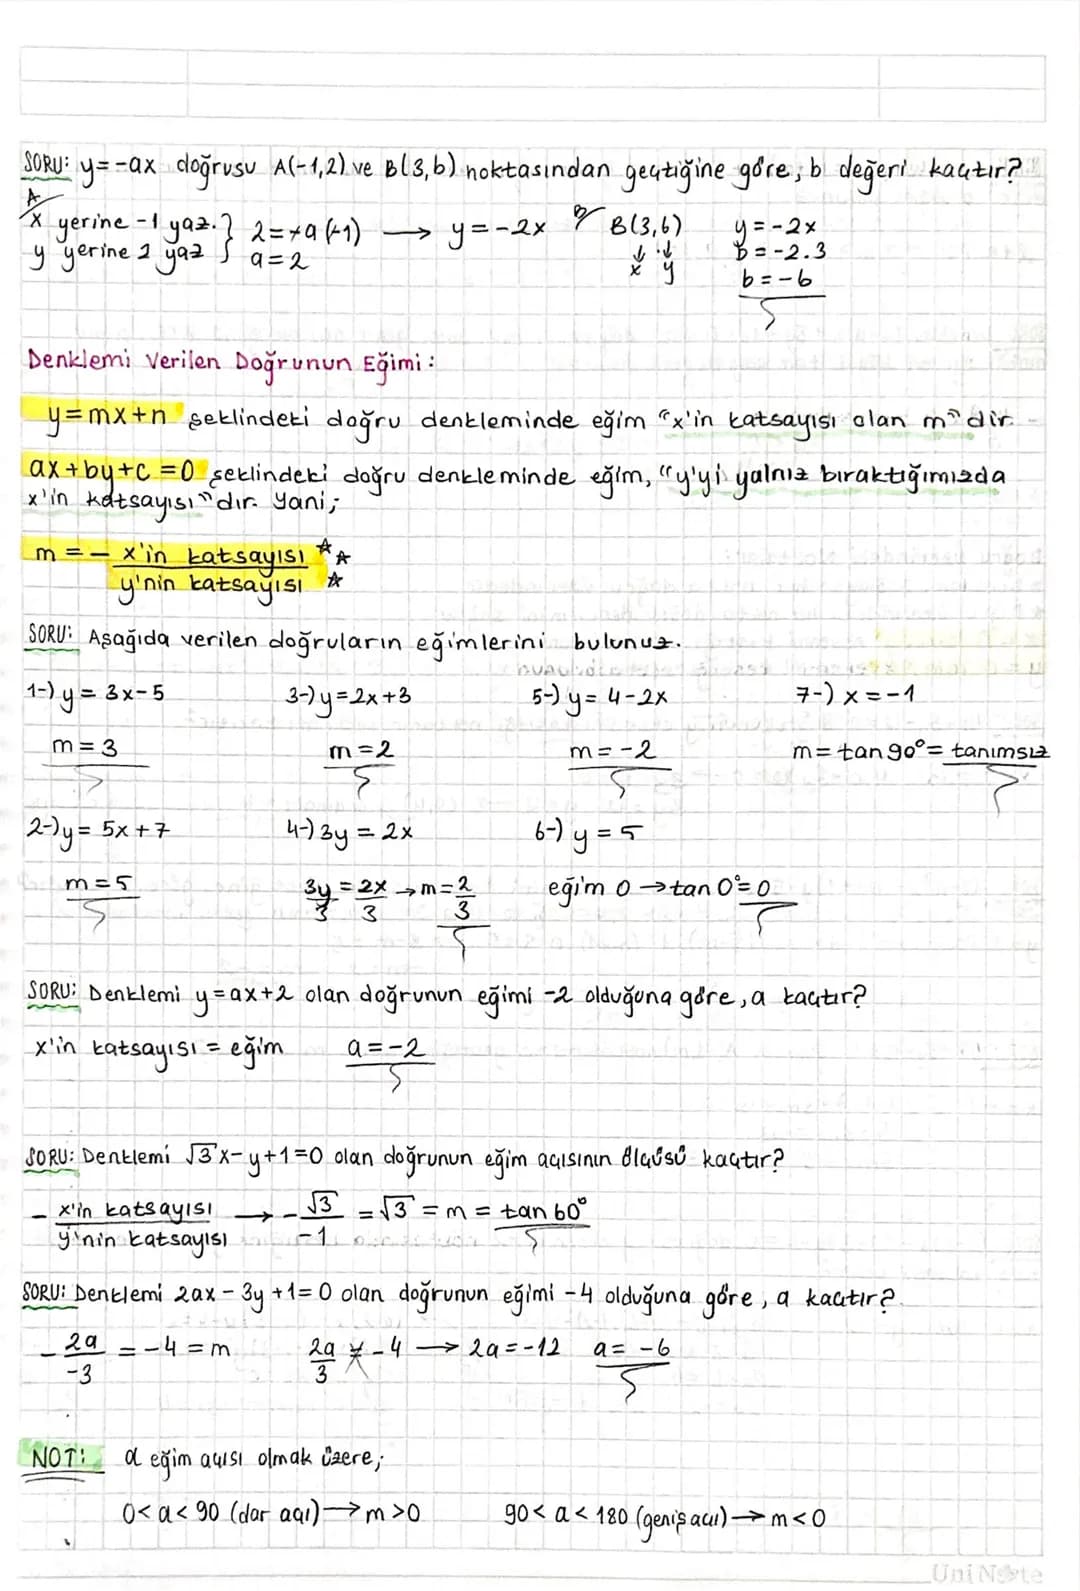 SORU: y=-ax doğrusu A(-1,2) ve B(3,b) noktasından geçtiğine göre, b değeri kaçtır?
A
x yerine -1 yaz. } 2=-a(-1) → y=-2x B B(3,b) y=-2x
y yerine 2 yaz } a=2 x y b=-2.3
b=-6
Denklemi Verilen Doğrunun Eğimi:
y=mx+n şeklindeki doğru denkleminde eğim "x'in katsayısı olan m" dir.
ax+by+c=0 şeklindeki doğru denkleminde eğim, "y'yi yalnız bıraktığımızda
x'in katsayısı" dır. Yani;
m = - x'in katsayısı
y'nin katsayısı
SORU: Aşağıda verilen doğruların eğimlerini bulunuz.
1-) y= 3x-5 3-) y=2x+3 5-) y= 4-2x 7-) x=-1
m=3 m=2 m=-2 m=tan90°= tanımsız
2-) y= 5x+7 4-) 3y = 2x 6-) y=5
m=5 3y/3 = 2x/3 → m=2/3 eğim 0 → tan 0°=0
SORU: Denklemi y=ax+2 olan doğrunun eğimi -2 olduğuna göre, a kaçtır?
x'in katsayısı = eğim a=-2
SORU: Denklemi √3x-y+1=0 olan doğrunun eğim açısının ölçüsü kaçtır?
- x'in katsayısı → - √3/-1 = √3 = m = tan 60°
y'nin katsayısı
SORU: Denklemi 2ax - 3y +1=0 olan doğrunun eğimi -4 olduğuna göre, a kaçtır?
- 2a/-3 = -4 = m 2a/3 = -4 → 2a=-12 a= -6
NOT: α eğim açısı olmak üzere;
0<α<90 (dar açı) → m>0 90<α<180 (geniş açı) → m<0
UniNote